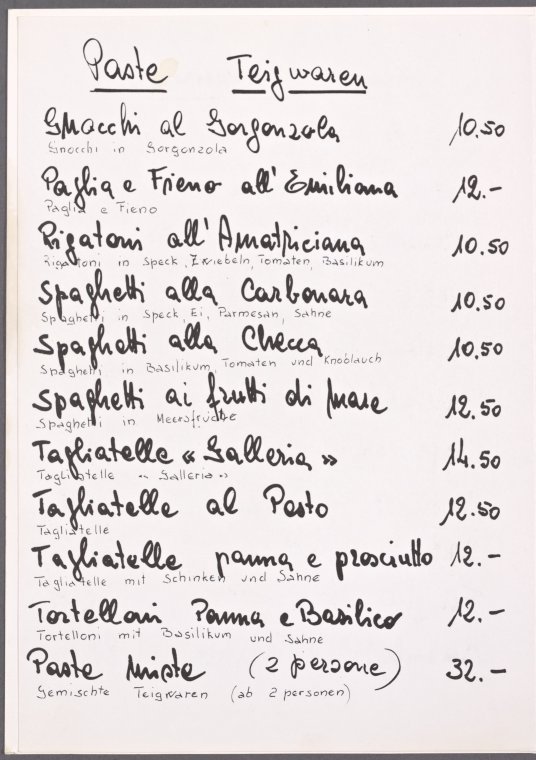 Paste Teigwaren
Gnocchi al Gorgonzola 10.50
Gnocchi in Gorgonzola
Paglia e Fieno all'Emiliana 12.-
Paglia e Fieno
Rigatoni all'Amatriciana 10.50
Rigatoni in Speck, Zwiebeln, Tomaten, Basilikum
Spaghetti alla Carbonara 10.50
Spaghetti in Speck, Ei, Parmesan, Sahne
Spaghetti alla Checca 10.50
Spaghetti in Basilikum, Tomaten und Knoblauch
Spaghetti ai frutti di mare 12.50
Spaghetti in Meersfrüchte
Tagliatelle « Galleria » 14.50
Tagliatelle « Galleria »
Tagliatelle al Pesto 12.50
Tagliatelle
Tagliatelle panna e prosciutto 12.-
Tagliatelle mit Schinken und Sahne
Tortelloni Panna e Basilico 12.-
Tortelloni mit Basilikum und Sahne
Paste miste (2 persone) 32.-
Gemischte Teigwaren (ab 2 personen)